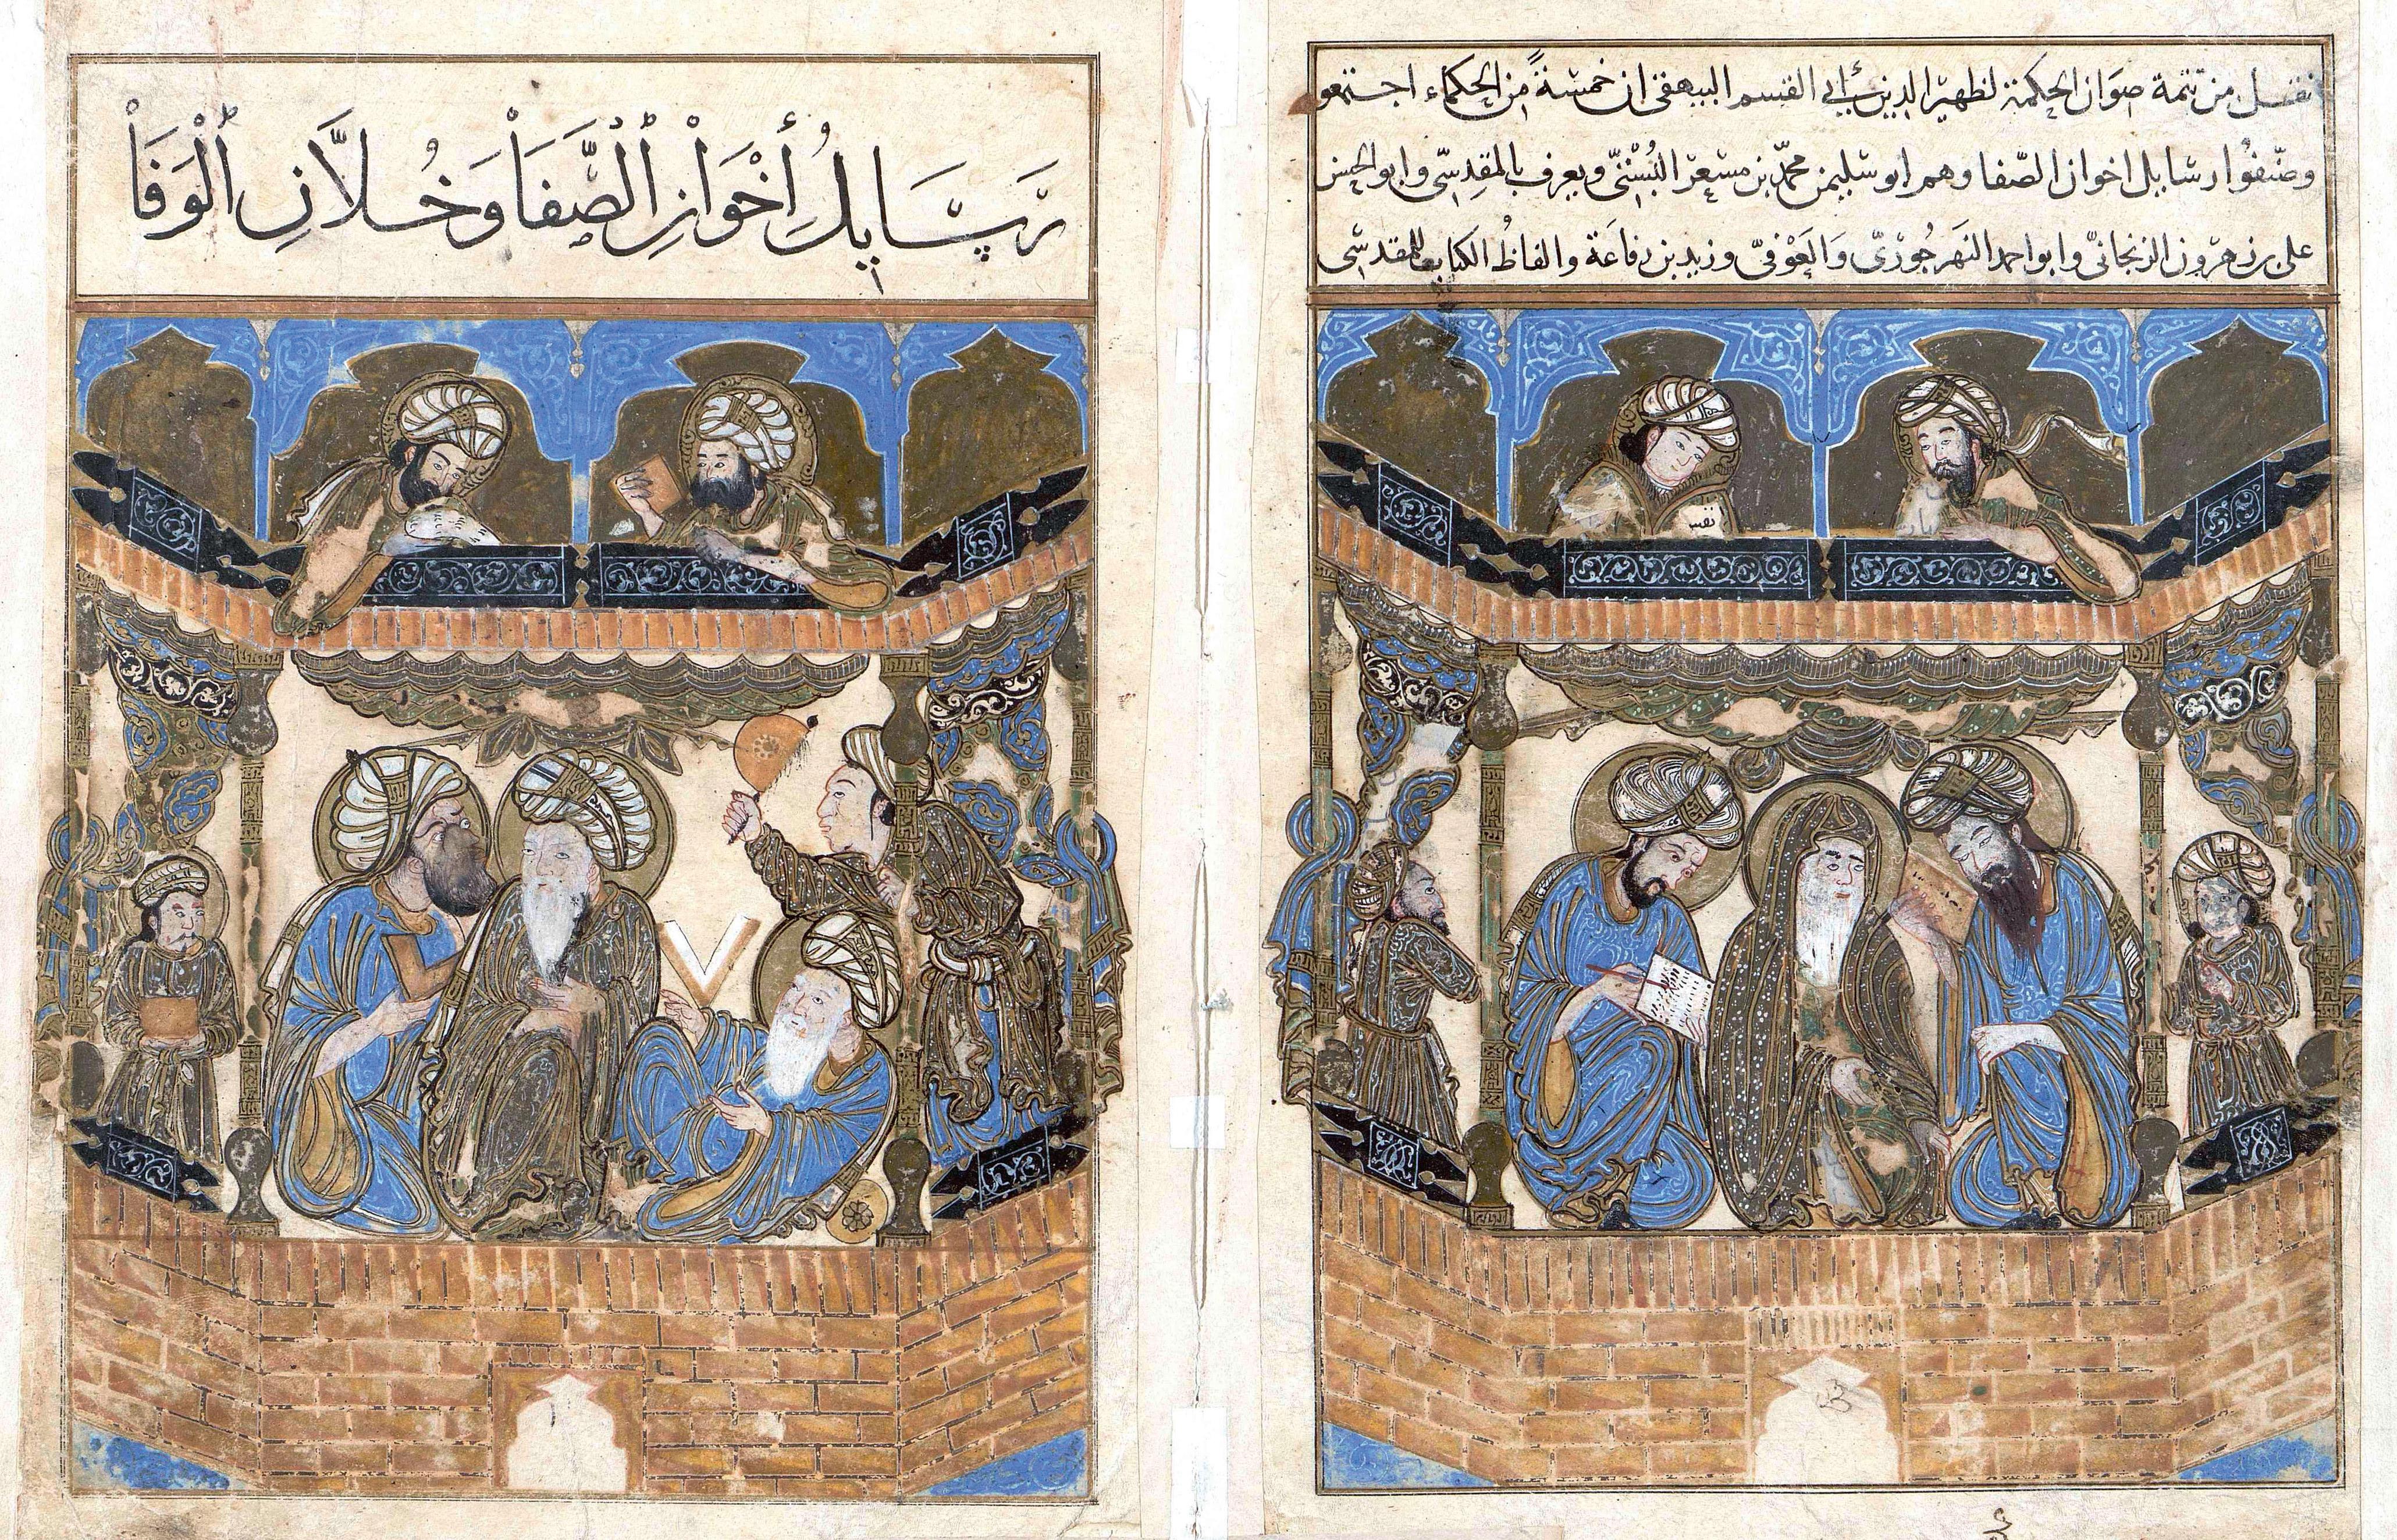 نقل من تتمة صوان الحكمة لظهير الدين بن أبي القسم البيهقي ان خمسة من الحكماء اجتمعوا
وصنّفوا رسايل اخوان الصّفا وهم ابو سليمن محمّد بن مسعر البُسْتيّ ويعرف بالمقدِسيّ وابو الحسن
علي بن هرون الزنجانيّ وابو احمد النهَرجُوريّ وَالعَوْفيّ وزيد بن رفاعَة والفاظُ الكتاب للمقدسّي
نفس
رَسَايِلُ إِخْوَانِ الصَّفَاْ وَخُلاَّنِ الْوَفَاْ